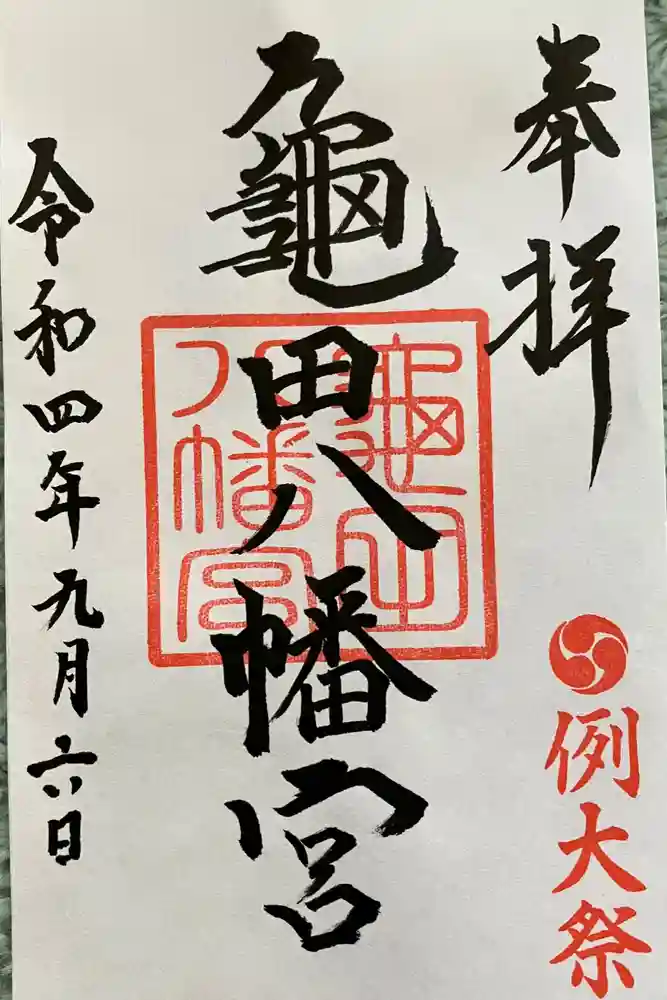 奉拝
例大祭
龜田八幡宮
龜田
八幡宮
令和四年九月六日